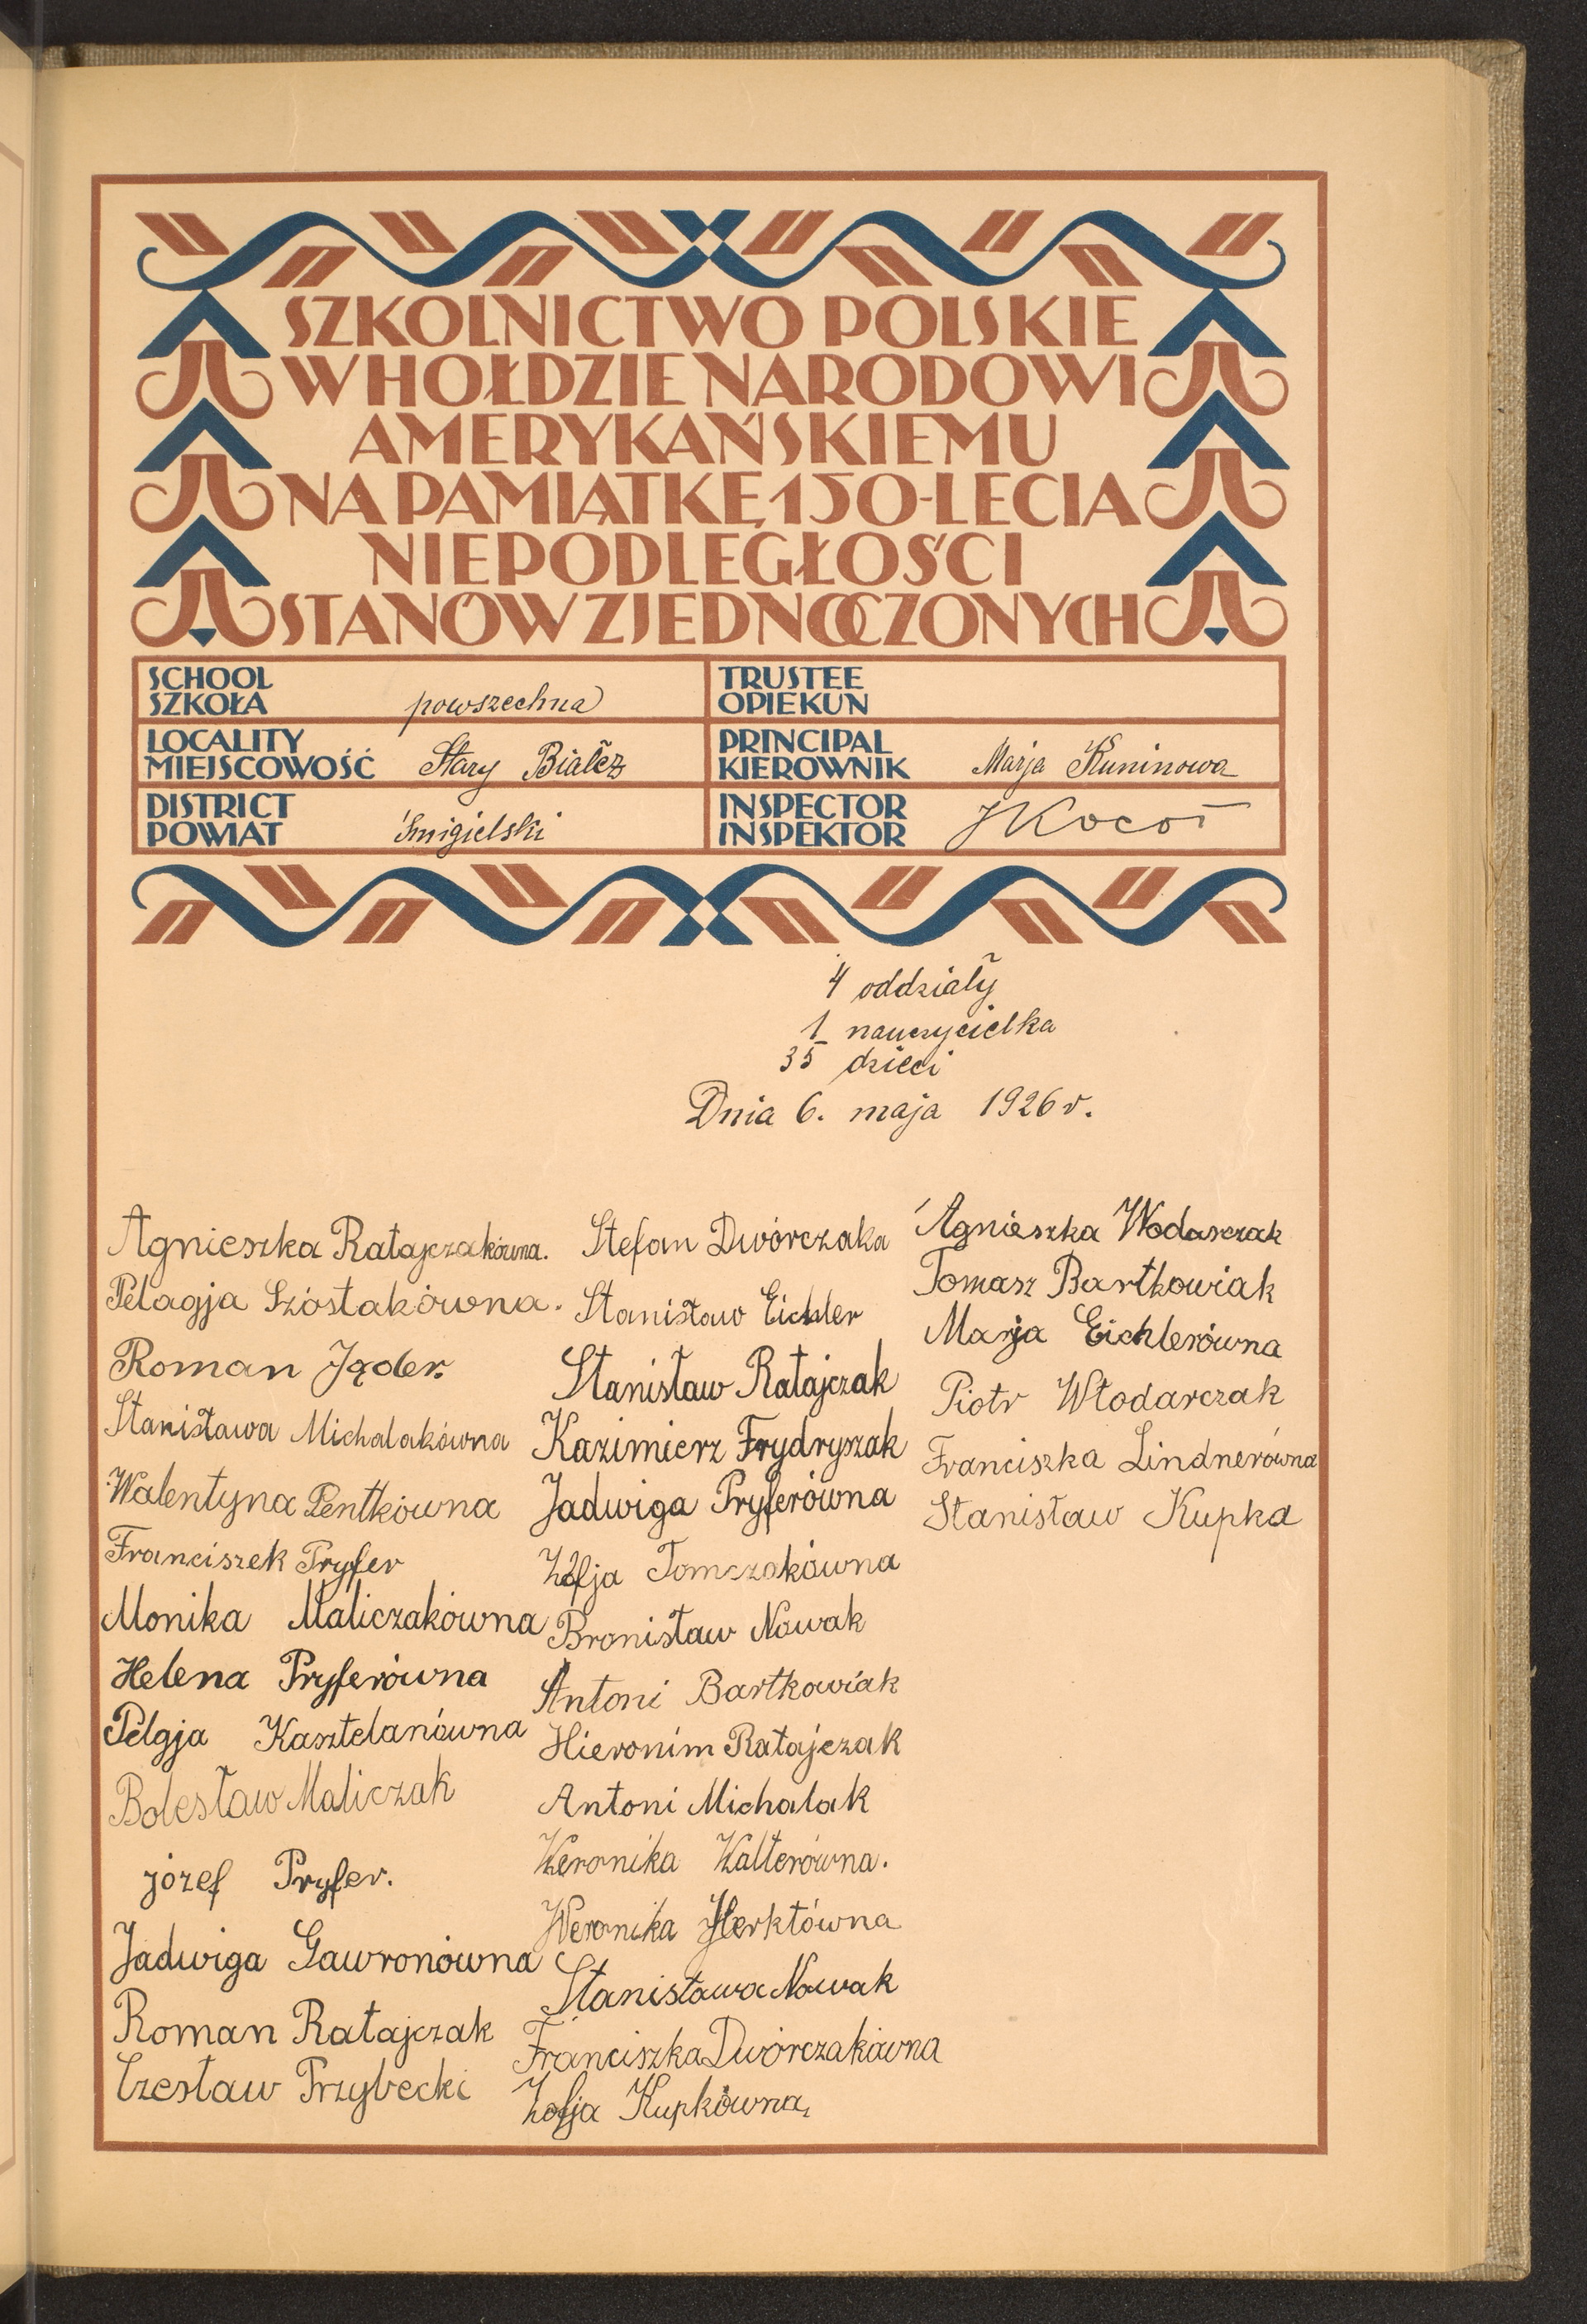 SZKOLNICTWO POLSKIE
W HOŁDZIE NARODOWI
AMERYKAŃSKIEMU
NA PAMIĄTKĘ 150-LECIA
NIEPODLEGŁOŚCI
STANÓW ZJEDNOCZONYCH
SCHOOL
SZKOŁA powszechna
TRUSTEE
OPIEKUN
LOCALITY
MIEJSCOWOŚĆ Stary Białcz
PRINCIPAL
KIEROWNIK Marja Kuninowa
DISTRICT
POWIAT śmigielski
INSPECTOR
INSPEKTOR JKocoł
4 oddziały
1 nauczycielka
35 dzieci
Dnia 6. maja 1926 r.
Agnieszka Ratajczakówna.
Pelagja Szóstakówna.
Roman Jąder.
Stanisława Michalakówna
Walentyna Pentkówna
Franciszek Pryfer
Monika Maliczakówna
Helena Pryferówna
Pelgja Kasztelanówna
Bolesław Maliczak
józef Pryfer.
Jadwiga Gawronówna
Roman Ratajczak
Czesław Przybecki
Stefan Dwórczaka
Stanisław Eichler
Stanisław Ratajczak
Kazimierz Frydryszak
Jadwiga Pryferówna
Zofja Tomczakówna
Bronisław Nowak
Antoni Bartkowiak
Hieronim Ratajczak
Antoni Michalak
Weronika Walterówna.
Weronika Herktówna
Stanisława Nowak
Franciszka Dwórczakówna
Zofja Kupkówna,
Agnieszka Wodasczak
Tomasz Bartkowiak
Marja Eichlerówna
Piotr Włodarczak
Franciszka Lindnerówna
Stanisław Kupka